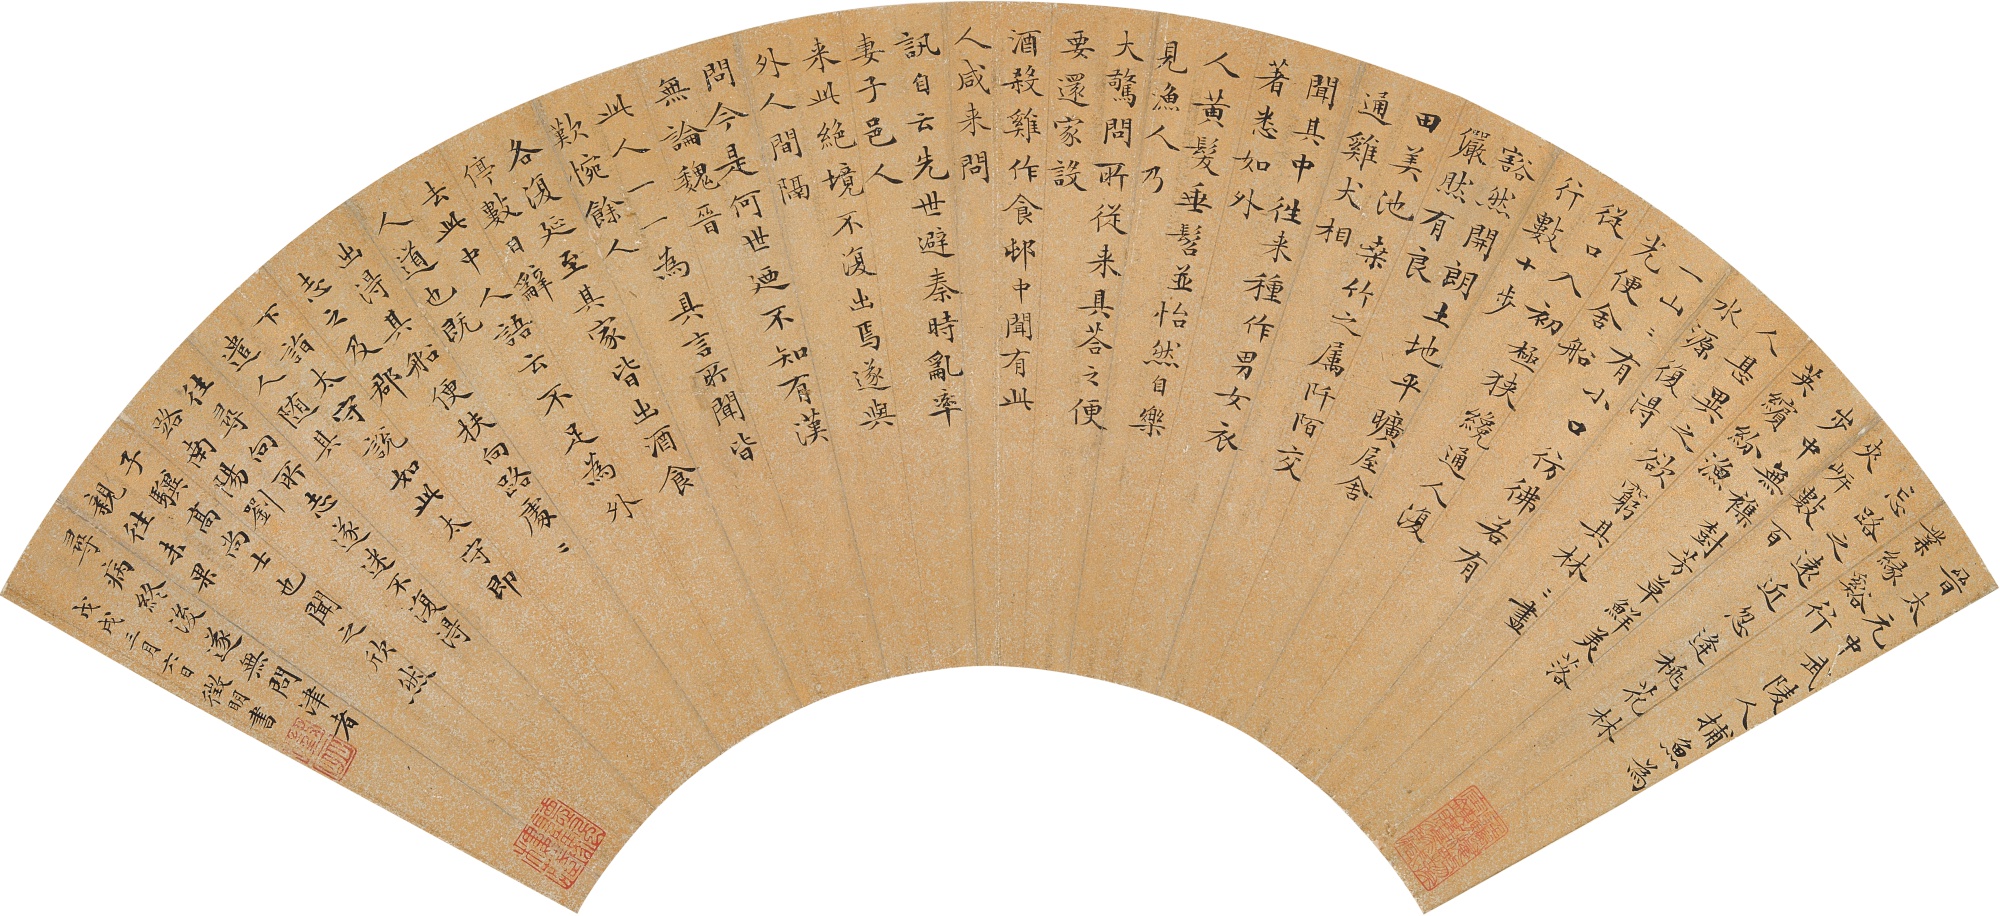 晉太元中武陵人捕魚為
業緣谿行
忘路之遠近忽逢桃花林
夾岍數百
步中無襍樹芳草鮮美落
英繽紛漁
人甚異之欲窮其林〻盡
水源復得
一山〻有小口彷彿若有
光便舍船
從口入初極狹纔通人復
行數十步
豁然開朗土地平曠屋舍
儼然有良
田美池桑竹之属阡陌交
通雞犬相
聞其中往来種作男女衣
著悉如外
人黄髮垂髫並怡然自樂
見漁人乃
大驚問所從来具荅之便
要還家設
酒殺雞作食邨中聞有此
人咸来問
訊自云先世避秦時亂率
妻子邑人
来此絶境不復出焉遂與
外人間隔
問今是何世廼不知有漢
無論魏晉
此人一一為具言所聞皆
歎惋餘人
各復延至其家皆出酒食
停數日辭
去此中人語云不足為外
人道也既
出得其船便扶向路處〻
志之及郡
下詣太守說如此太守即
遣人随其
往尋向所志遂迷不復得
路南陽劉
子驥高尚士也聞之欣然
親往未果
尋病終後遂無問津者
戊戌三月六日徵明書